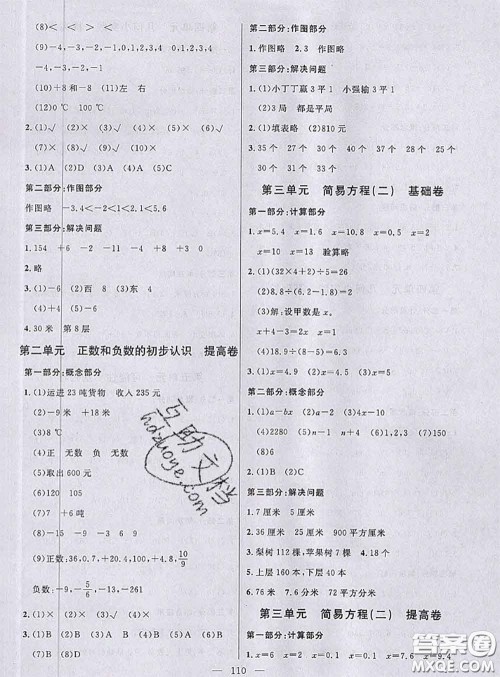 (8)< < > <
(9)-4,-4,-3,-3,-2,-2,-1,-1,
-4,-3,-2,-1
(10)+8和-8 (11)左 右
(12)0℃ 100℃
2.(1)√ (2)× (3)√ (4)× (5)×
(6)× (7)× (8)×
3.(1)A (2)D (3)A (4)A (5)C
第二部分:作图部分
作图略 -3.4<-2<1<2.1<5.6
第三部分:解决问题
1.154 +6 -2 -11 +3 0
2.略
3.(1)-6 (2)西 8 (3)东 4
(4)+4 (5)-6
4.30米 第8层
第二单元 正数和负数的初步认识 提高卷
第一部分:概念部分
1.(1)运进23吨货物 收入235元
(2)-9米 +18米
(3)8℃
(4)正 无数 负 无数
(5)取出600元
(6)120 105
(7)+6吨
(8)-15 -9 -3 3 9
(9)正数:36,0.7,+20.4,+3,+4.8,10/9
负数:-9,-5/6,-13,-261
2.(1)× (2)× (3)√ (4)× (5)×
3.(1)B (2)D (3)A (4)B (5)B
第二部分:作图部分
1.作图略 2.3 作图略
第三部分:解决问题
1.(1)小丁丁赢3平1 小强输3平1
(2)3局 都是平局
2.(1)填表略 (2)810元
3.35个 27个 28个 37个 25个
31个 30个 33个
第三单元 简易方程(二) 基础卷
第一部分:计算部分
1.x=5.4 x=8 x=0.5 x=2
x=10 x=13 验算略
2.(1)(32×4+2)÷5=26
(2)18.8÷(6.2-1.8)=2
(3)解:设甲数是x。
x+4x-1=29
x=6
第二部分:概念部分
1.(1)a-bx (2)n-4 (3)10
(4)2250 (5)10 (6)0
2.(1)B (2)C (3)A
第三部分:解决问题
1.7厘米 2.9厘米
3.36厘米 25厘米 900平方厘米
4.梨树112棵,苹果树7棵
5.上层160本,下层40本
6.76米 7.6厘米 72平方厘米
第三单元 简易方程(二) 提高卷
第一部分:计算部分
1.x=6 x=2 x=0.1 x=7 x=9.4
110
互助文档
hdzuoye.com
答案圈
MXQE.COM